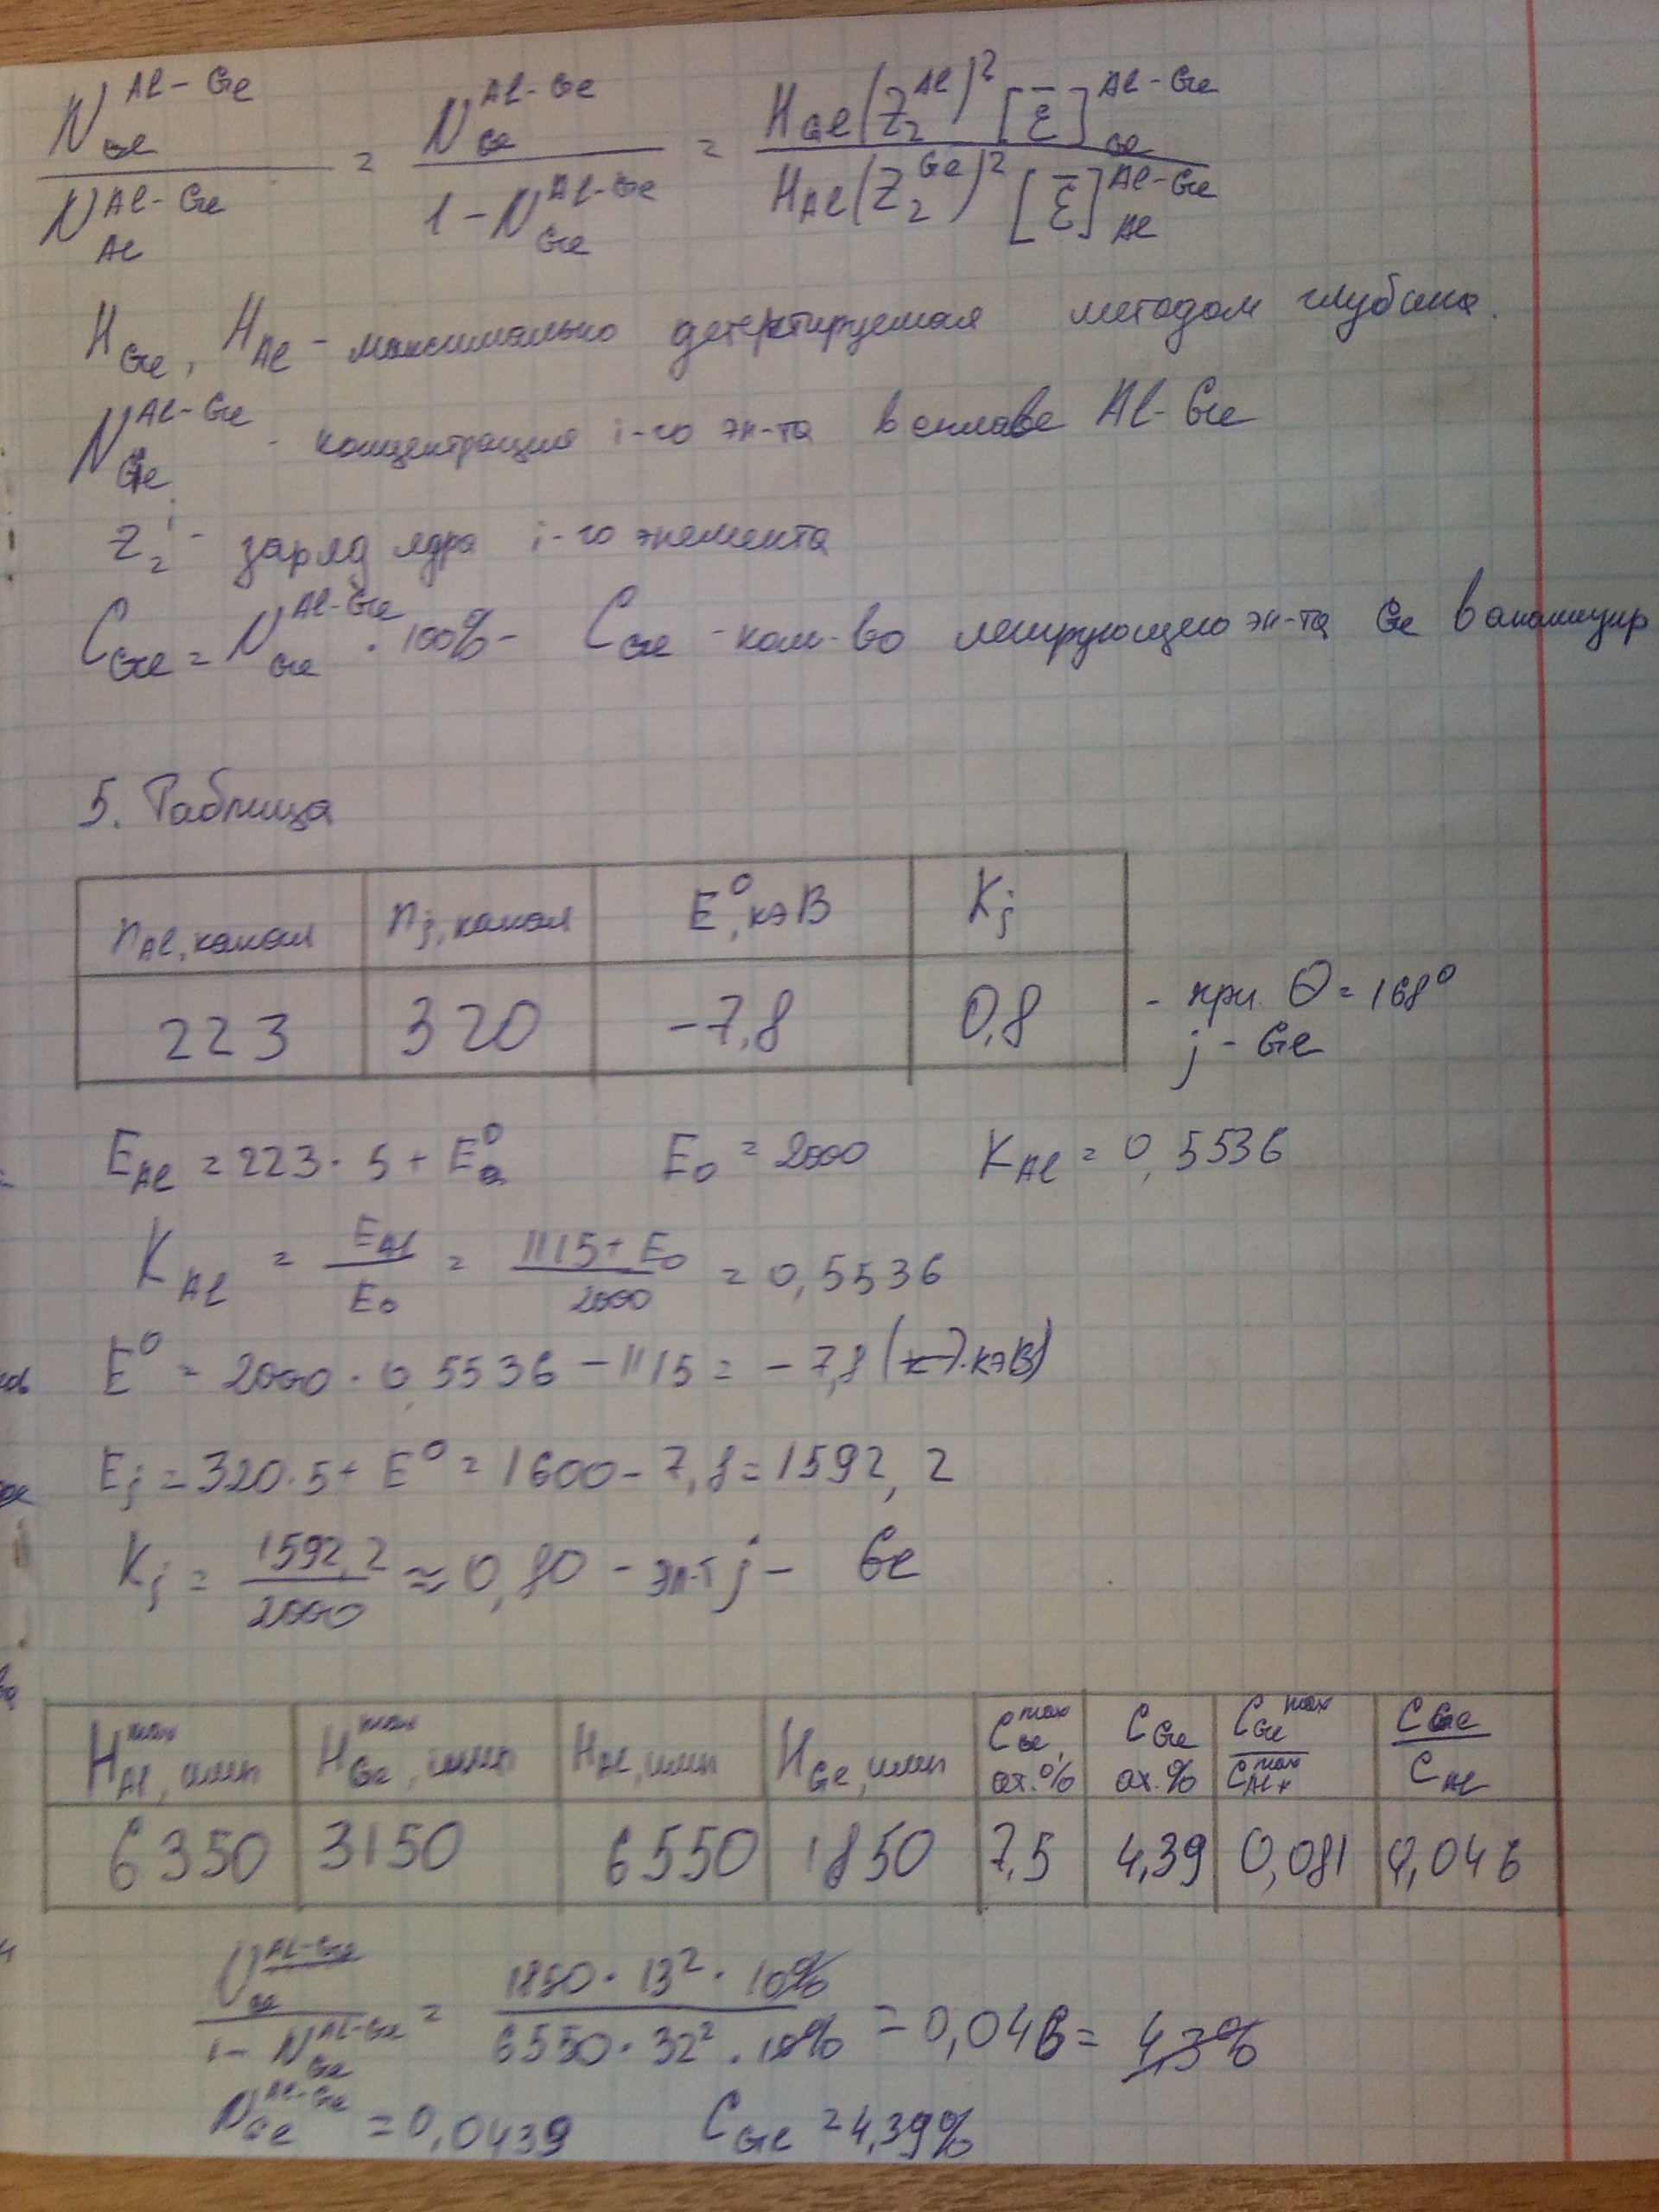 N_Ge^Al-Ge / N_Al^Al-Ge = N_Ge^Al-Ge / 1 - N_Ge^Al-Ge = H_Ge (Z_2^Al)^2 [ε̄]_Ge^Al-Ge / H_Al (Z_2^Ge)^2 [ε̄]_Al^Al-Ge
H_Ge, H_Al - максимально детектируемая методом глубина.
N_Ge^Al-Ge - концентрация i-го эл-та в сплаве Al-Ge
Z_2^i - заряд ядра i-го элемента
C_Ge = N_Ge^Al-Ge · 100% - C_Ge - кол-во легирующего эл-та Ge в
5. Таблица
n_Al, канал n_j, канал E^0, кэВ K_j
223 320 -7,8 0,8 - при θ = 168°
j - Ge
E_Al = 223 · 5 + E^0 E_0 = 2000 K_Al = 0,5536
K_Al = E_Al / E_0 = 1115 + E_0 / 2000 = 0,5536
E^0 = 2000 · 0,5536 - 1115 = -7,8 (кэВ)
E_j = 320 · 5 + E^0 = 1600 - 7,8 = 1592,2
K_j = 1592,2 / 2000 ≈ 0,80 - эл-т j - Ge
H_Al^max, имп H_Ge^max, имп H_Al, имп H_Ge, имп C_Ge^max, ат.% C_Ge ат.% C_Ge^max / C_Al^max C_Ge / C_Al
6350 3150 6550 1850 7,5 4,39 0,081 0,046
N_Ge^Al-Ge / 1 - N_Ge^Al-Ge = 1850 · 13^2 · / 6550 · 32^2 · = 0,046 = 4,3%
N_Ge^Al-Ge = 0,0439 C_Ge = 4,39%